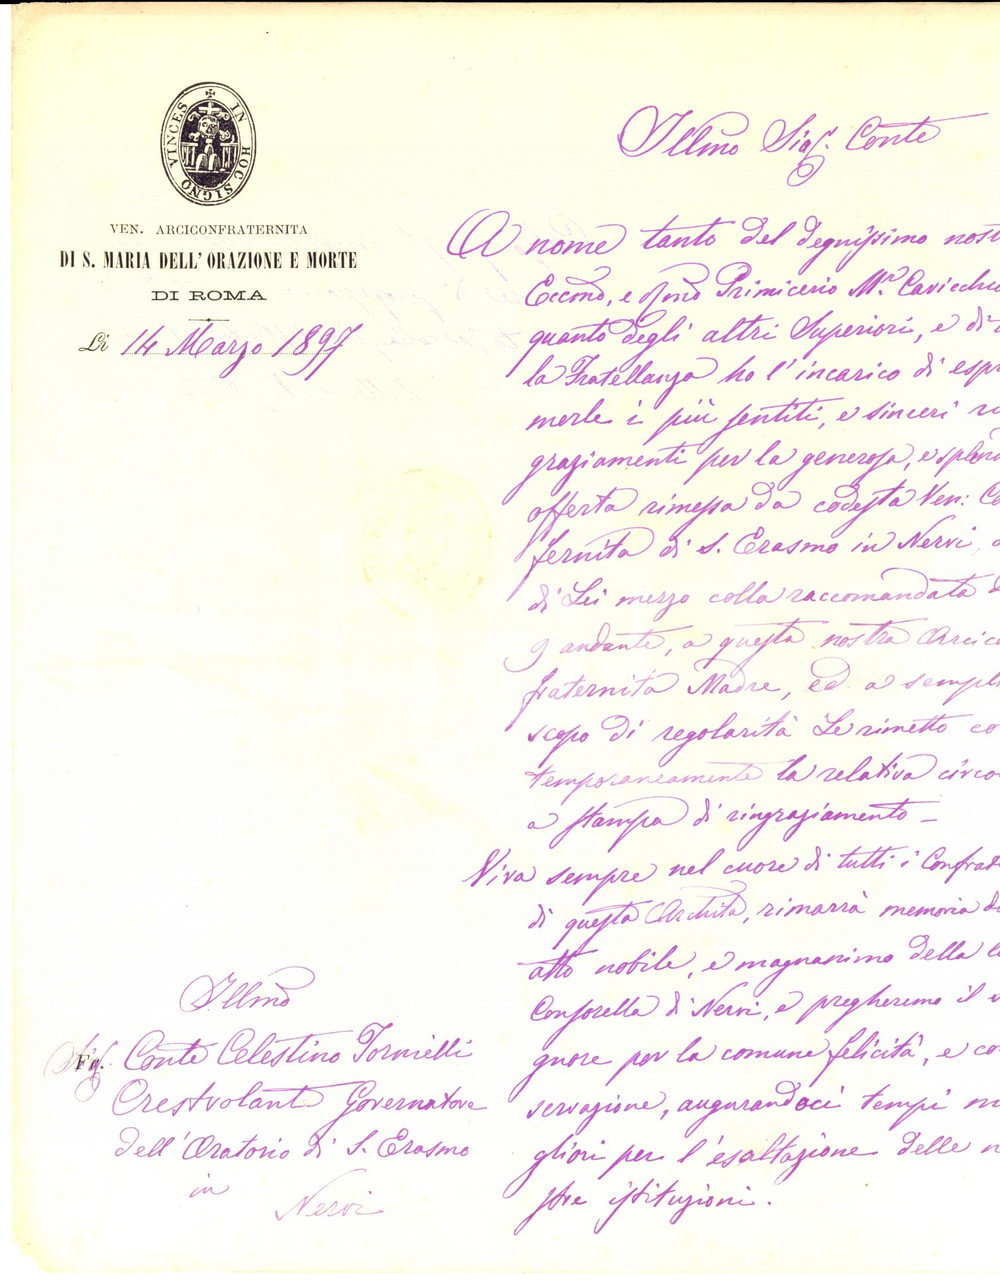 IN HOC SIGNO VINCES
VEN. ARCICONFRATERNITA
DI S. MARIA DELL'ORAZIONE E MORTE
DI ROMA
Li 14 Marzo 1897
Illmo Sigr. Conte
A nome tanto del degnissimo nost
Eccmo, e Rmo Primicerio Mr. Cavicchi
quanto degli altri Superiori, e di
la Fratellanza ho l'incarico di espri
merle i più sentiti, e sinceri ri
graziamenti per la generosa, e splend
offerta rimessa da codesta Ven: Co
fernita di S. Erasmo in Nervi, a
di Lei mezzo colla raccomandata d
9 andante, a questa nostra Arcico
fraternità Madre, ed a sempli
scopo di regolarità Le rimetto co
temporaneamente la relativa circo
a stampa di ringraziamento _
Viva sempre nel cuore di tutti i Confrat
di questa Archita, rimarrà memoria d
atto nobile, e magnanimo della
Consorella di Nervi, e pregheremo il
gnore per la comune felicità, e co
servazione, augurandoci tempi m
gliori per l'esaltazione delle n
stre istituzioni.
Illmo
Sigr. Conte Celestino Tornielli
Crestvolant Governatore
dell'Oratorio di S. Erasmo
in
Nervi